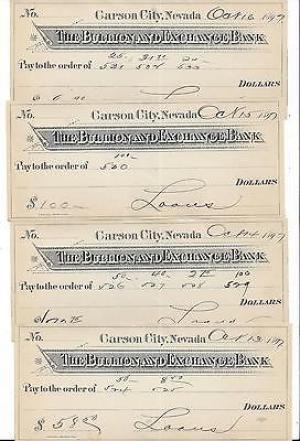 No. Carson City, Nevada Oct 16 1897
THE BULLION AND EXCHANGE BANK
25-
Pay to the order of 531 534 533
DOLLARS
No. Carson City, Nevada Oct 15 1897
THE BULLION AND EXCHANGE BANK
100-
Pay to the order of 530
DOLLARS
$100- Loans
No. Carson City, Nevada Oct 14 1897
THE BULLION AND EXCHANGE BANK
50- 40- 100
Pay to the order of 526 527 528 529
DOLLARS
Loans
No. Carson City, Nevada Oct 13 1897
THE BULLION AND EXCHANGE BANK
50- 8 50
Pay to the order of 524 525
DOLLARS
$58 50 Loans